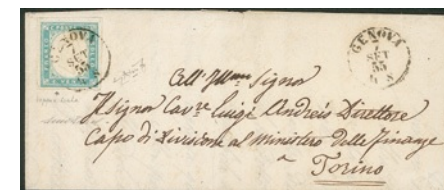 GENOVA
7
SET
55
GENOVA
7
SET
55
All' Illmo Signor
Il signor Cavre Luigi Andreis Direttore
Capo di Divisione al Ministero delle Finanze
a Torino